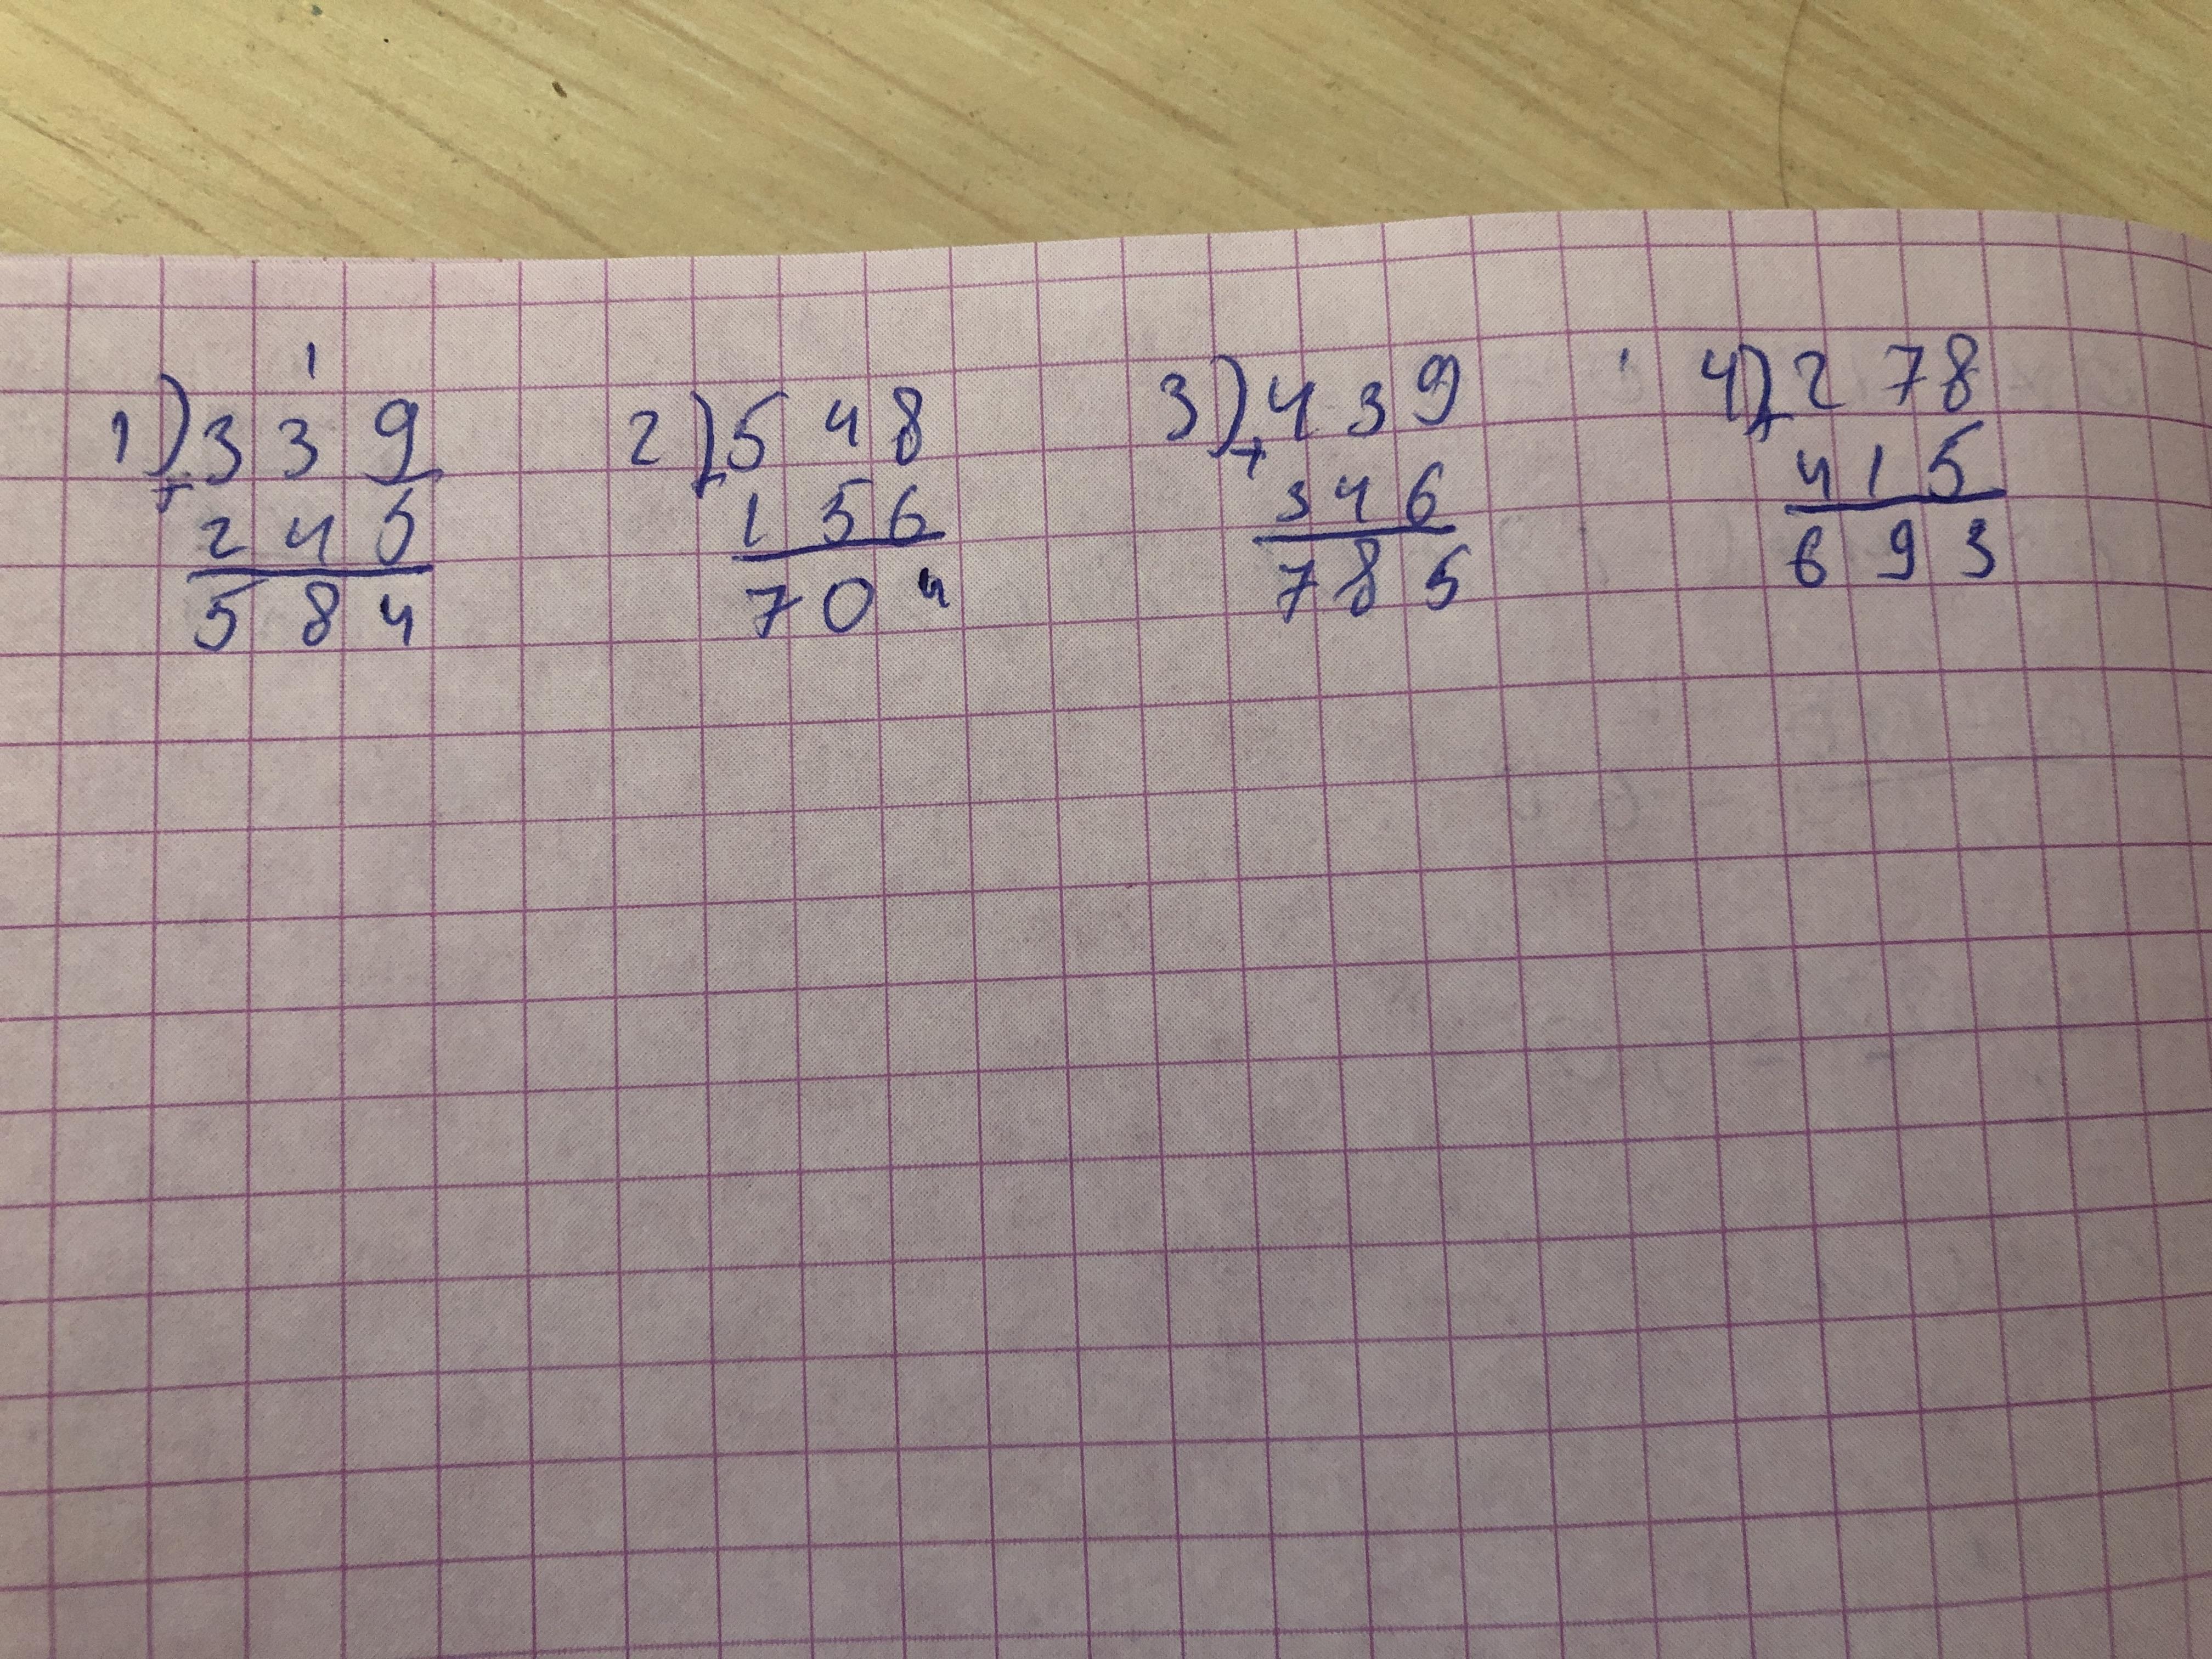 1
1) 339 2) 548 3) 439 4) 278
+ + + +
245 156 346 415
584 704 785 693